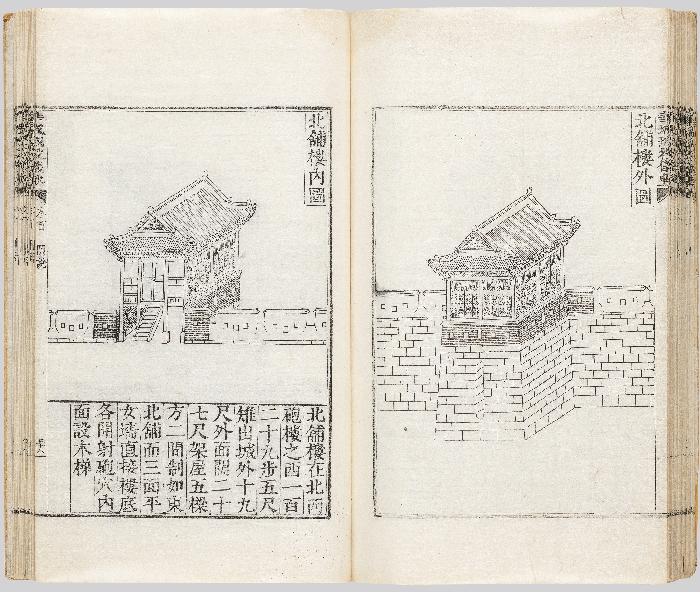 北舖樓外圖
北舖樓內圖
北舖樓在北西
砲樓之西一百
二十九步五尺
雉出城外十九
尺外面闊二十
七尺架屋五樑
方二間制如東
北舖而三面平
女墻直接樓底
各開射砲穴內
面設木梯